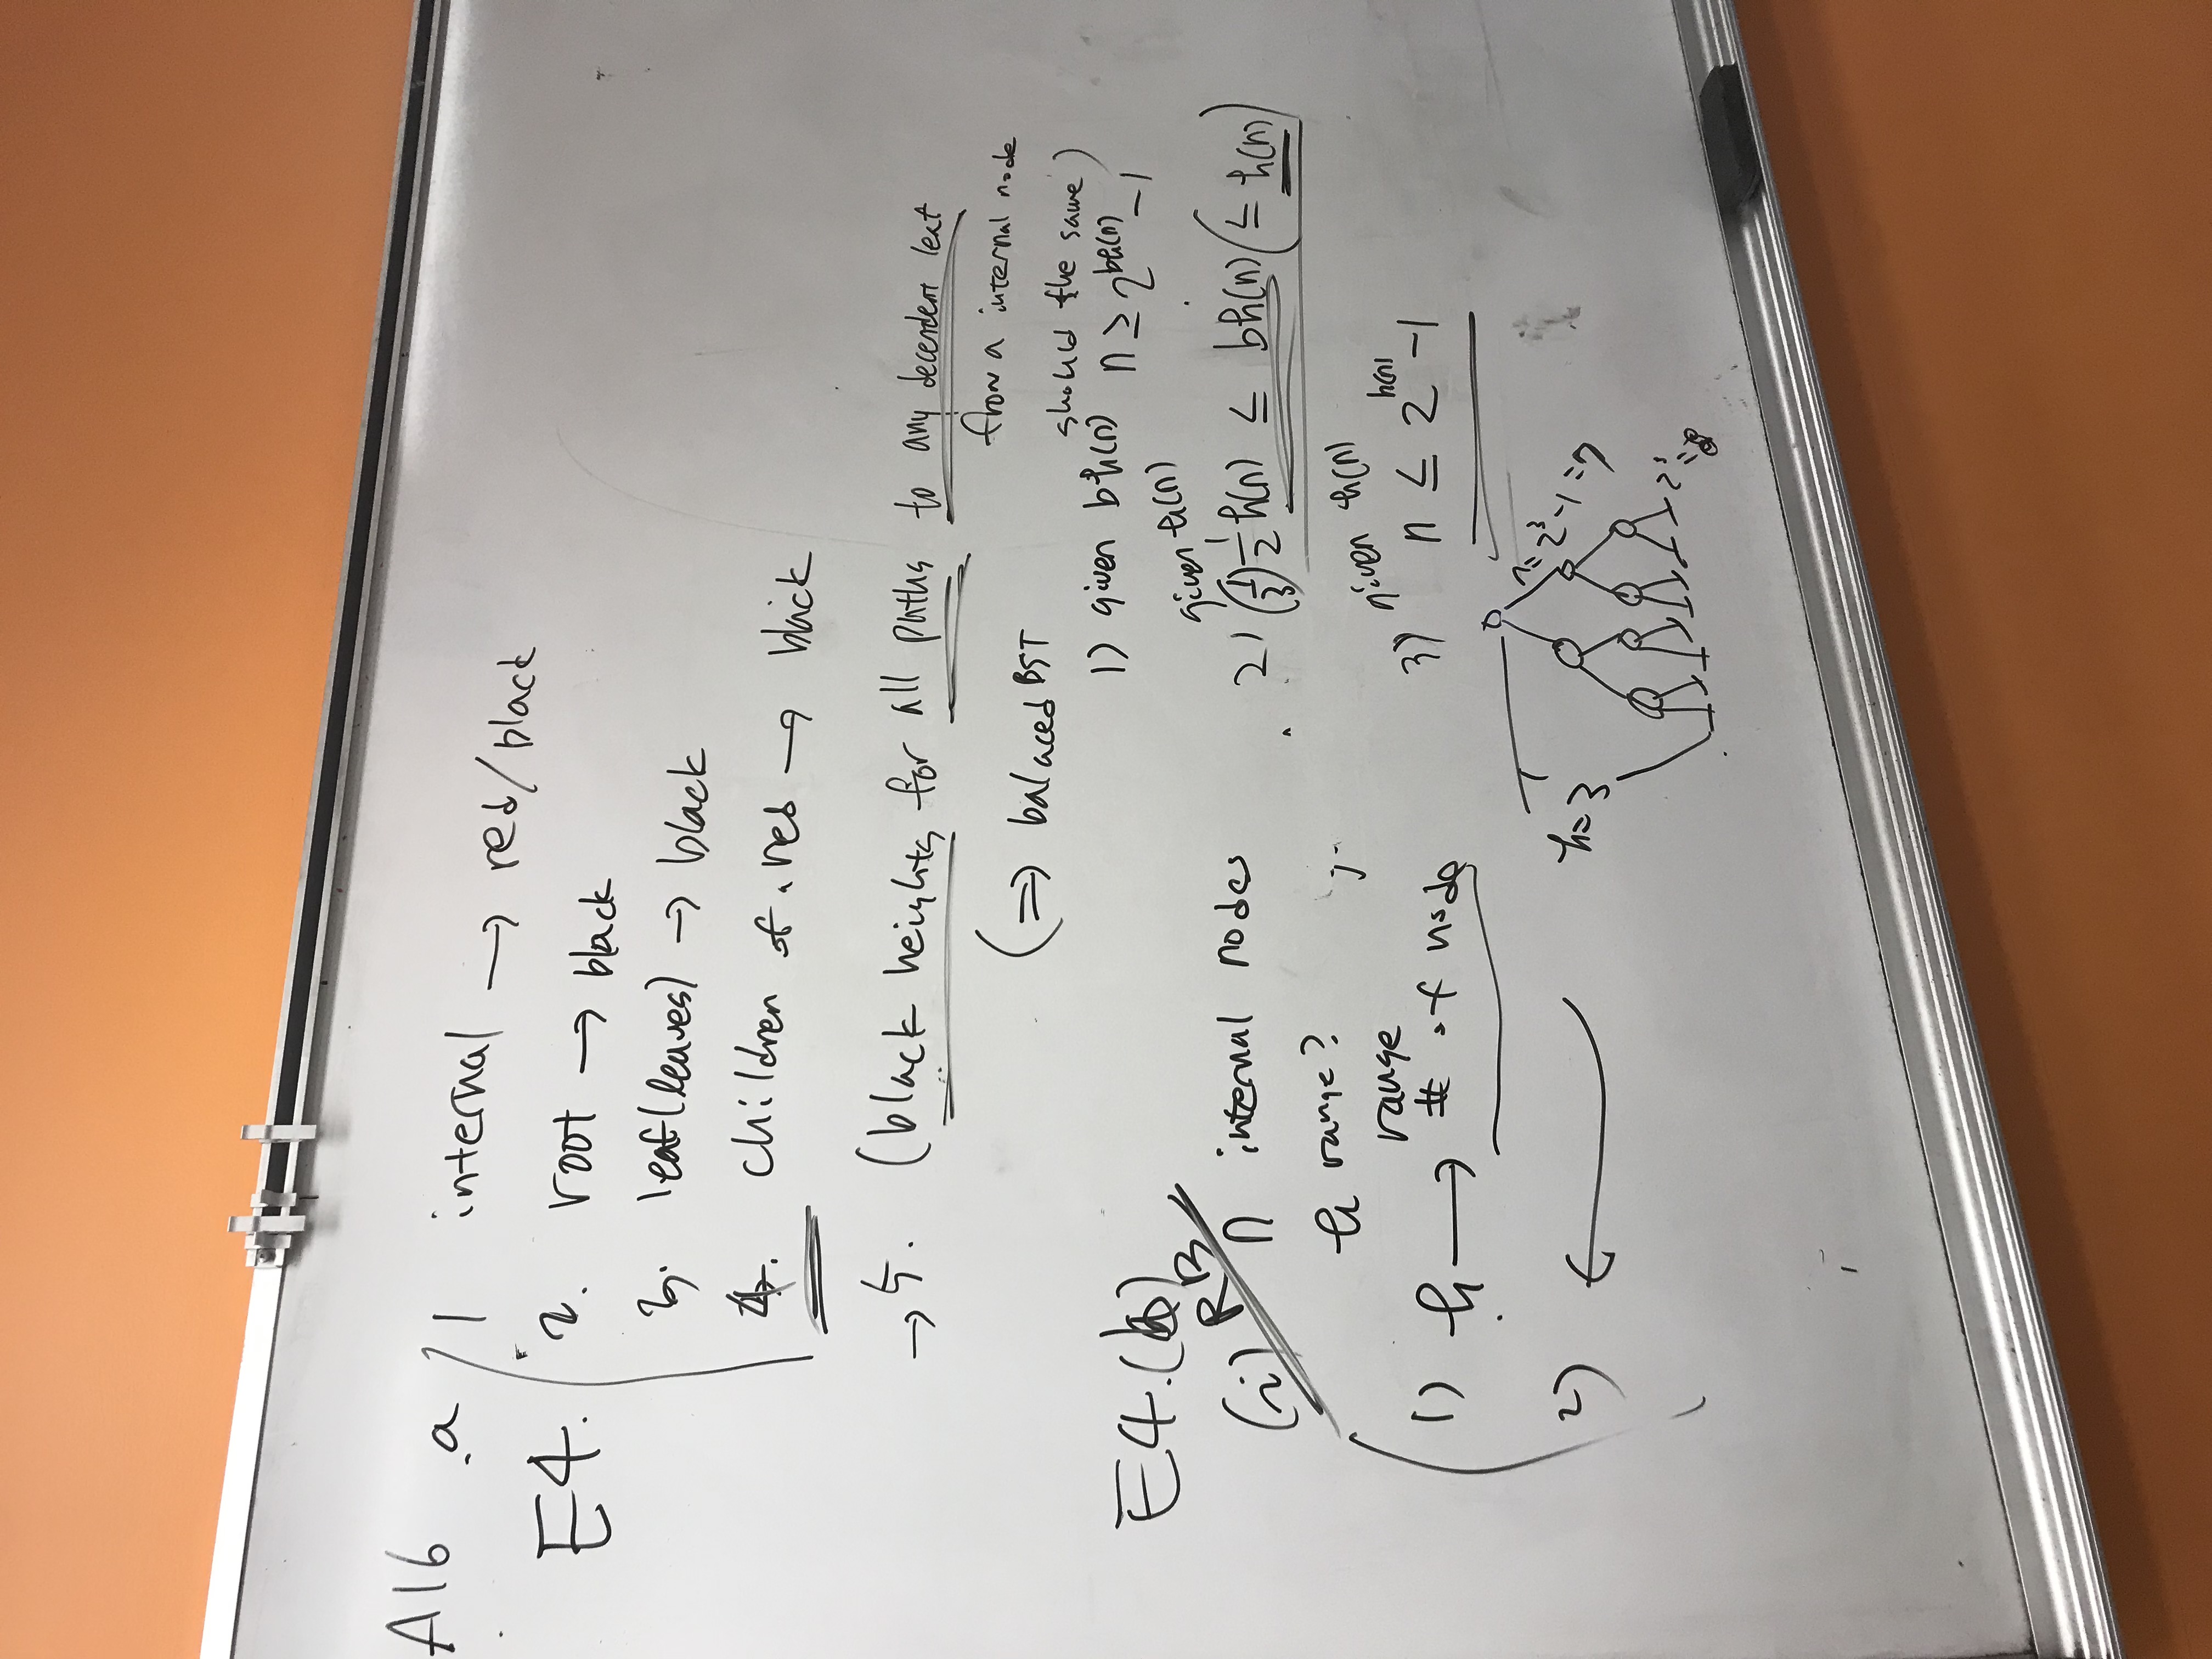 A16 .a
E4.
1 internal → red/black
2. root → black
3. leaf(leaves) → black
4. children of a red → black
→ 5. (black heights for all paths to any decendent leat
from a internal node
should the same)
(⇒ balaced BST
E4.(b)
(i) RB n internal nodes
h range?
range
1) h → # of node
2) ←
1) given bh(n) n ≥ 2^bh(n) - 1
given h(n)
2) (1/3) 1/2 h(n) ≤ bh(n) (≤ h(n))
given h(n)
3) n ≤ 2^h(n) - 1
h=3
n=2^3-1=7
2^3=8